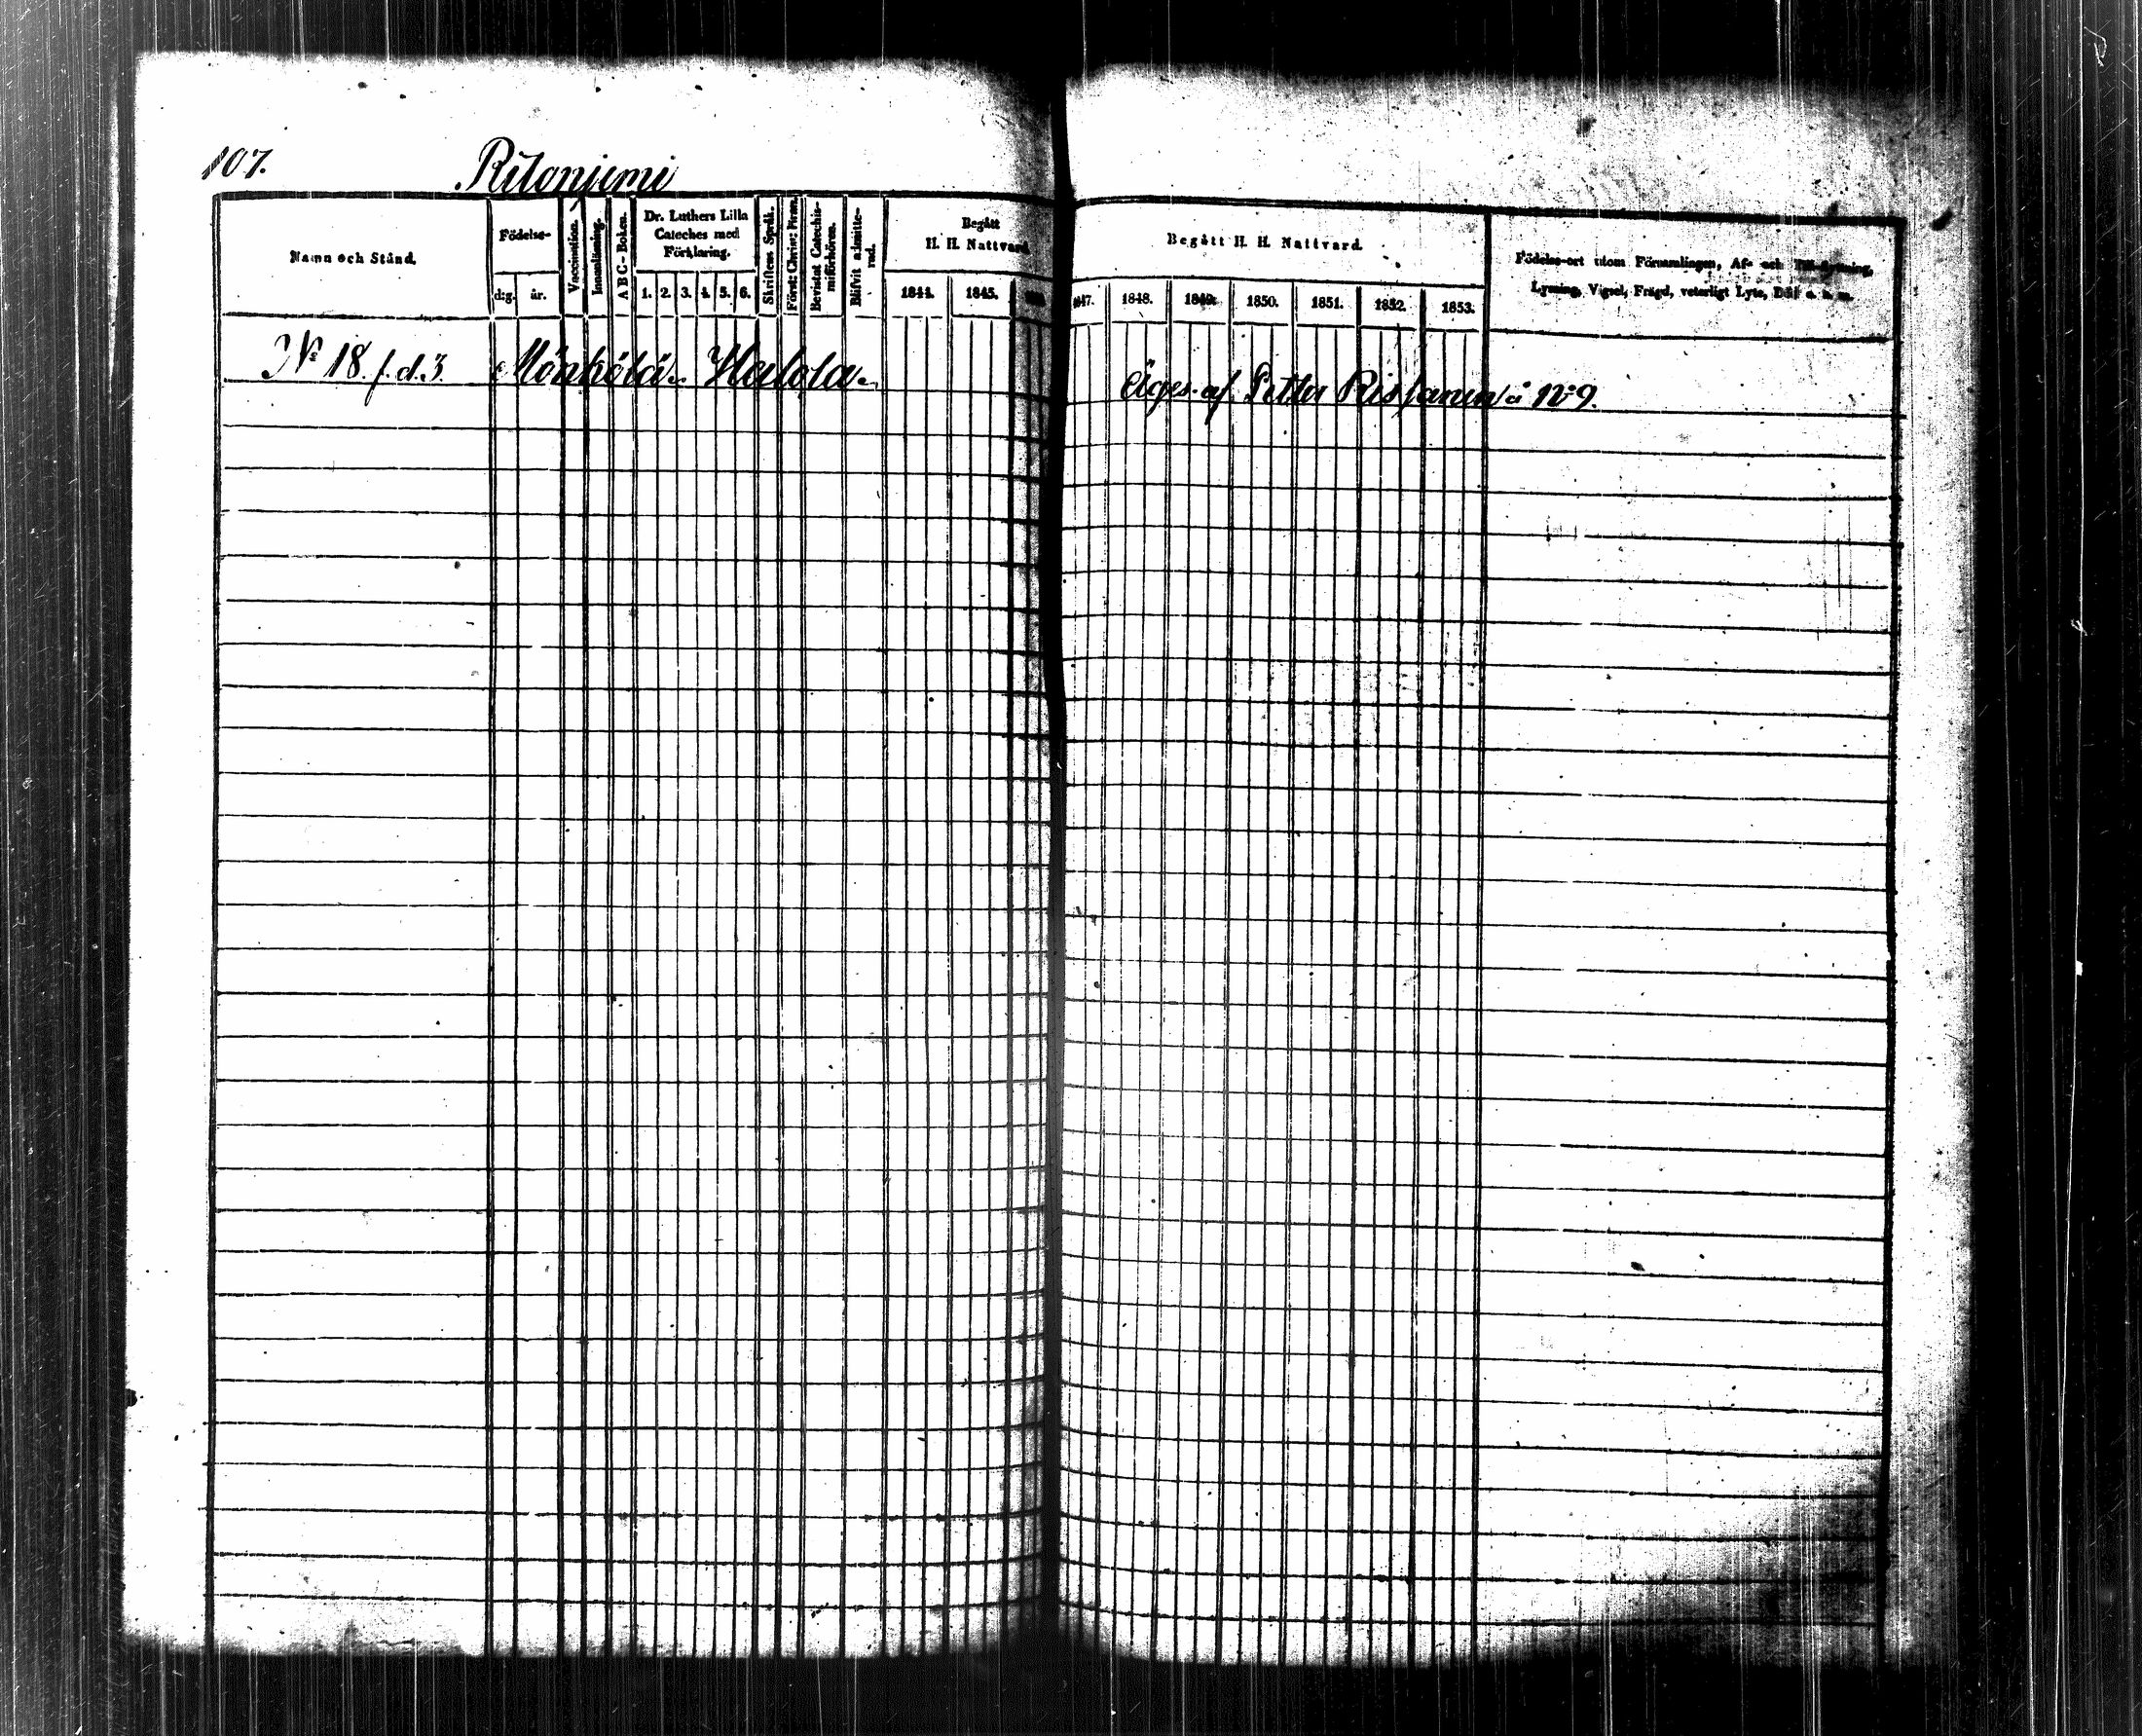 107.
Ritoniemi
Namn och Stånd.
Födelse-
d:g. år.
Vaccination.
Innanläsning.
ABC-Boken.
Dr. Luthers Lilla
Cateches med
Förklaring.
1. 2. 3. 4. 5. 6.
Skriftens Språk.
Bevistat Catechis-
miförhören.
Blifvit admitte-
rad.
Begått
H. H. Nattvard
1844. 1845.
Begått H. H. Nattvard.
1848. 1849. 1850. 1851. 1852. 1853.
Födelse-ort utom Församlingen, Af- och Till-flyttning,
Lysning, Vigsel, Frägd, veterligt Lyte, Död o. s. m.
N:o 18. f. d. 3. Mönkölä. Halola.
Äges af Petter Rissanen å N:o 9.